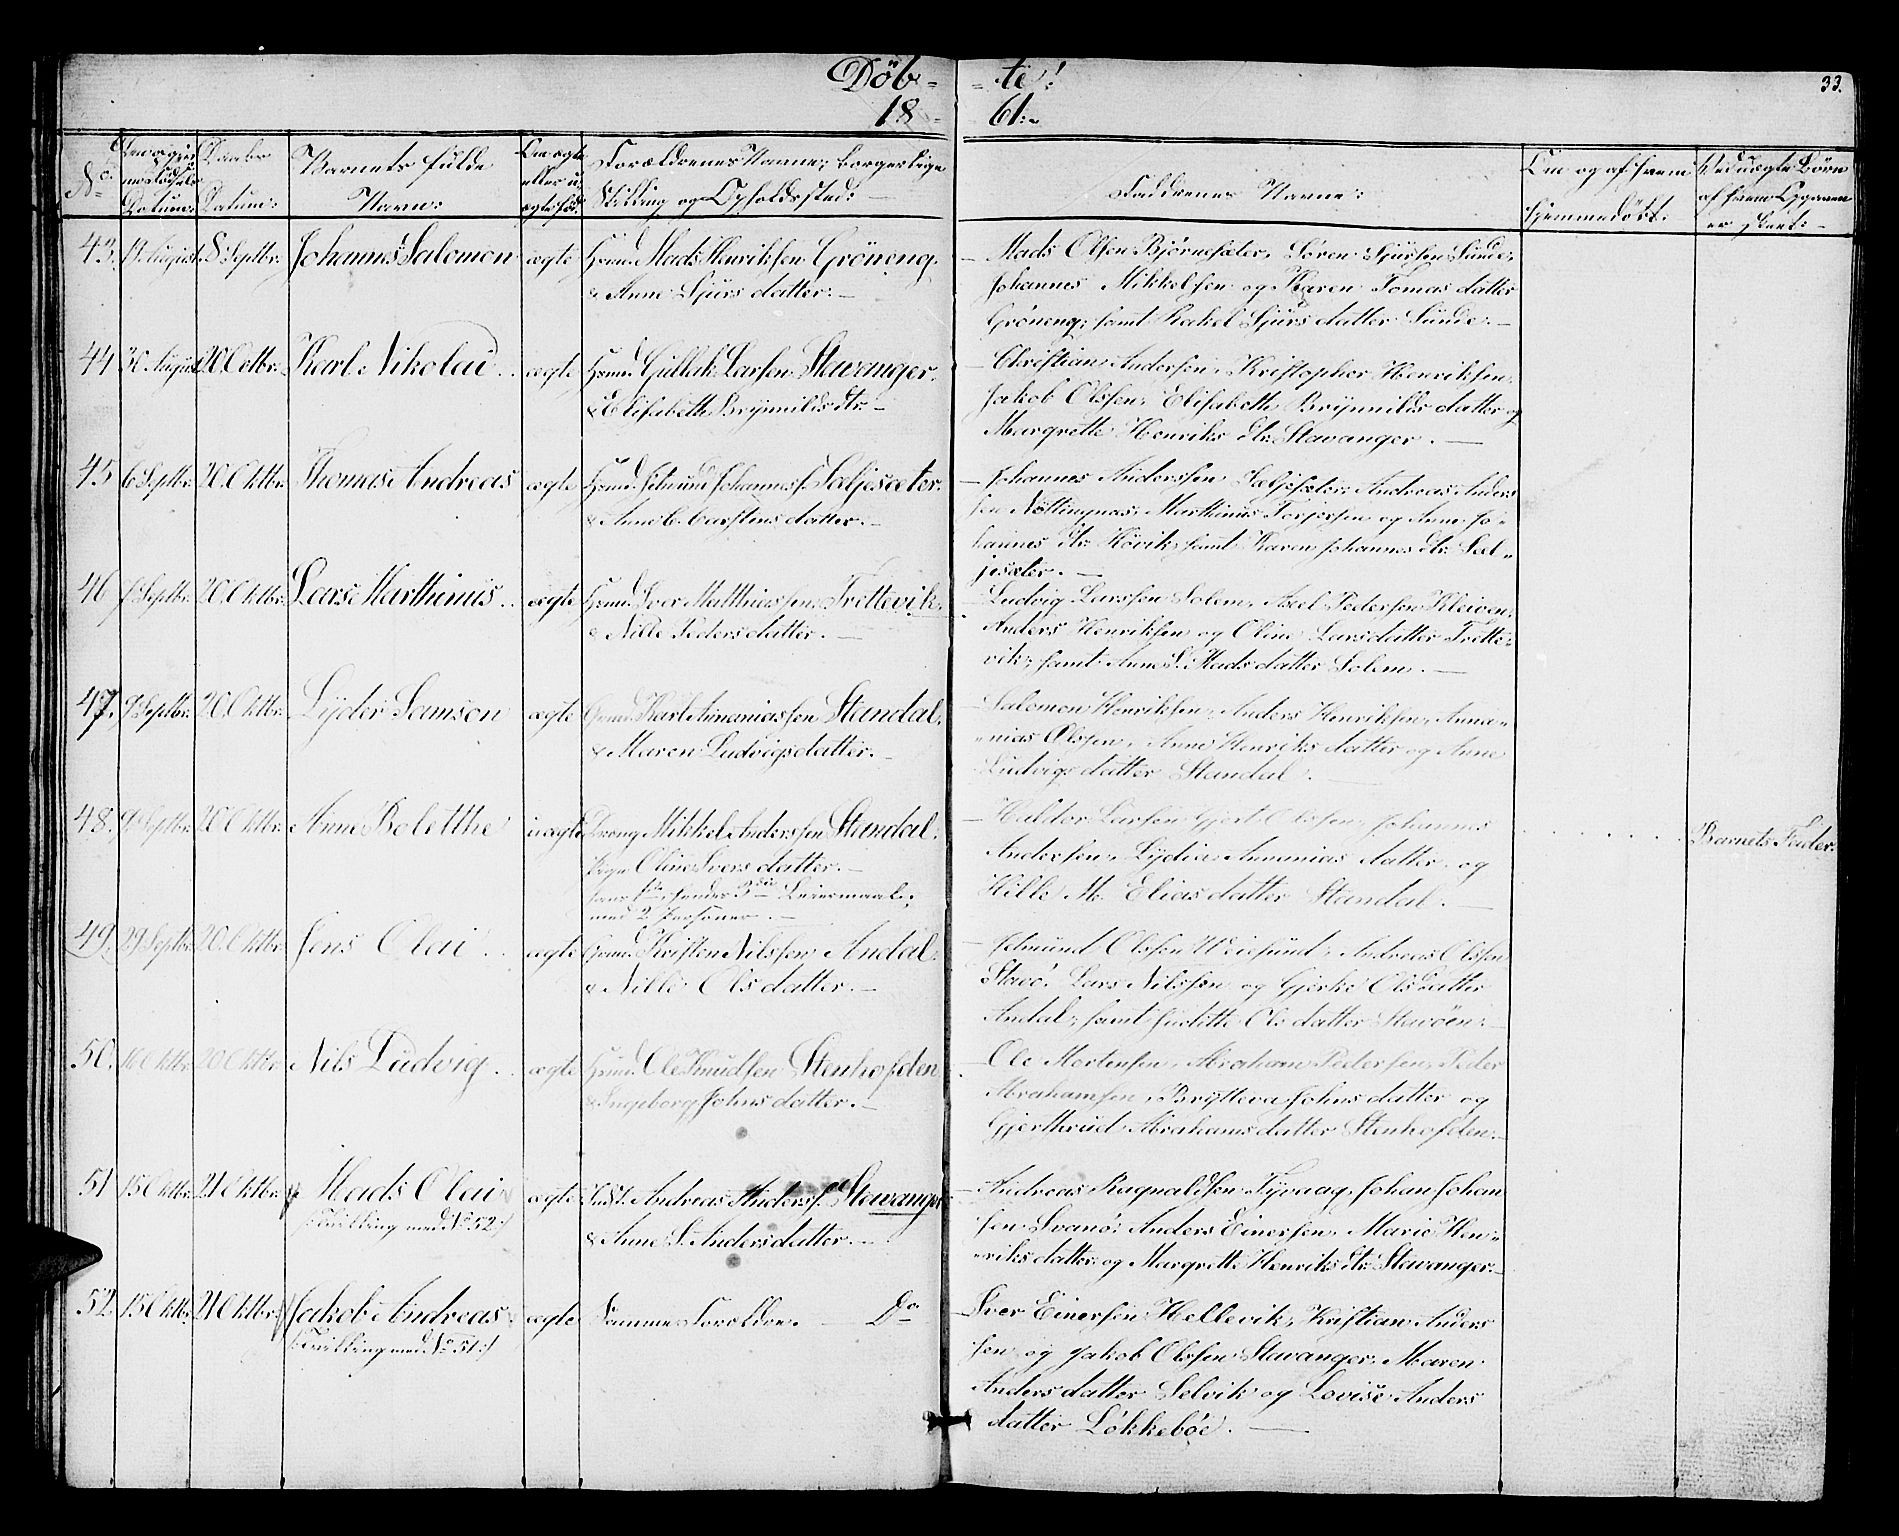 Döb- -te!
18- 61:
33.
No
Daabs Datum:
Barnets fulde Navn:
Om ægte eller uægte fød:
Forældrenes Navne, borgerlige Stilling og Opholdssted:
Faddrenes Navne:
Om og af hvem hjemmedöbt:
Ved uægte Börn af hvem Opgaven er skeet:
43. 14 August 8 Septbr. Johannes Salomon ægte Huusmd. Mads Henriksen Gröneng.
& Anne Sjurs datter.
Mads Olsen Björnesæter, Sören Sjursen Sunde,
Johannes Mikkelsen og Karen Tomas datter
Gröneng; samt Rakel Sjurs datter Sunde.
44 30 August 20 Octbr. Karl Nikolai ægte Gullak Larsen Stavanger.
& Elisabeth Brynnilds dtr.
Christian Andersen, Kristopher Henriksen,
Jakob Olssen, Elisabeth Brynnilds datter og
Margrette Henriks dtr. Stavanger.
45 6 Septbr. 20 Oktbr. Thomas Andreas ægte Johannes. Sæljesæter.
& Anne C. Carstens datter.
Johannes Anderssen Sæljesæter, Andreas Anders
sen Nöttingnæs, Marthinus Torjersen og Anne Jo-
hannes dtr. Hövik, samt Karen Johannes dtr. Sæl-
jesæter.
46 Septbr. 20 Oktbr. Lars Marthinus ægte Iver Matthiassen Trettevik,
& Nille Peders datter.
Ludvig Larssen Solem, Axel Pedersen Kleiven,
Anders Henriksen og Oline Lars datter Trette-
vik, samt Anne S. Mads datter Solem.
47. 9 Septbr. 20 Oktbr. Lyder Samson ægte Karl Annaniassen Standal.
& Maren Ludvigsdatter.
Salomon Henriksen, Anders Henriksen, Anna-
nias Olssen, Anne Henriks datter og Anne
Ludvigs datter Standal.
48. 9 Septbr. 20 Oktbr. Anne Bolette uægte Dreng Mikkel Anderssen Standal.
Pige Oline Ivers datter.
hans 1ste, hendes 3die Leiermaal,
med 2 Personer.
Haldor Larsen, Gjert Olssen, Johannes
Andersen, Lydia Annanias datter og
Hille M. Elias datter Standal.
Barnets Fader.
49. 29 Septbr. 20 Oktbr. Jens Olai ægte Kristen Nilssen Andal.
& Nille Ols datter.
Edmund Olssen Weiesund, Andreas Olssen
Stavö, Lars Nilssen og Gjerke Ols datter
Andal; samt Juditte Ols datter Stavöen.
50. 1 Oktbr. 20 Oktbr. Nils Ludvig ægte Ole Knudsen Stenhofden
& Ingeborg Johns datter.
Ole Mortensen, Abraham Pedersen, Peder
Abrahamsen, Brytteva Johns datter og
Gjerthrud Abrahams datter Stenhofden.
51 15 Oktbr. 21 Oktbr. Mads Olai ægte Andreas Anderss. Stavanger
/:Tvilling med No 52:/
& Anne S. Andersdatter.
Andreas Ragnaldsen Tyvaag, Johan Johan
sen Svanö, Anders Einersen, Marie Hen-
riks datter og Margrette Henriks dtr. Stavanger.
52. 15 Oktbr. 21 Oktbr. Jakob Andreas ægte Samme Foreldre. Do
/:Tvilling med No 51:/
Iver Einersen Hellevik, Kristian Anders
sen og Jakob Olssen Stavanger, Maren
Anders datter Selvik og Lovise Anders
datter Lökkeböe.